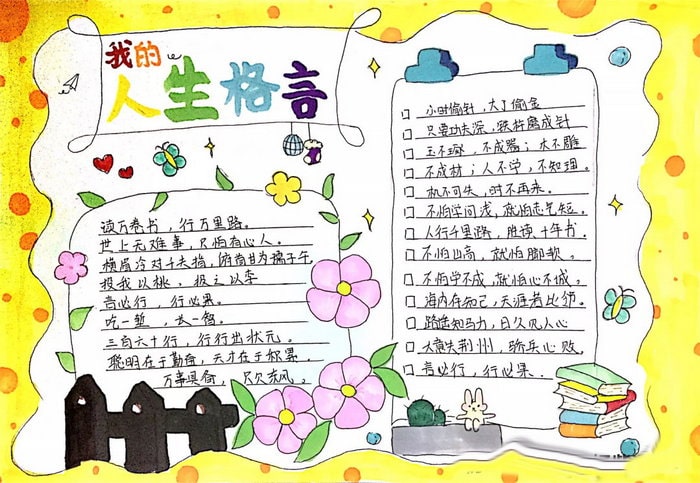 我的
人生格言
读万卷书，行万里路。
世上无难事，只怕有心人。
横眉冷对千夫指，俯首甘为孺子牛
投我以桃，报之以李
言必行，行必果。
吃一堑，长一智。
三百六十行，行行出状元。
聪明在于勤奋，天才在于积累。
万事具备，只欠东风。
小时偷针，大了偷金
只要功夫深，铁杵磨成针
玉不琢，不成器；木不雕
不成材；人不学，不知理。
机不可失，时不再来。
不怕学问浅，就怕志气短。
人行千里路，胜读十年书。
不怕山高，就怕脚软。
不怕学不成，就怕心不诚。
海内存知己，天涯若比邻。
路遥知马力，日久见人心
大意失荆州，骄兵必败。
言必行，行必果.